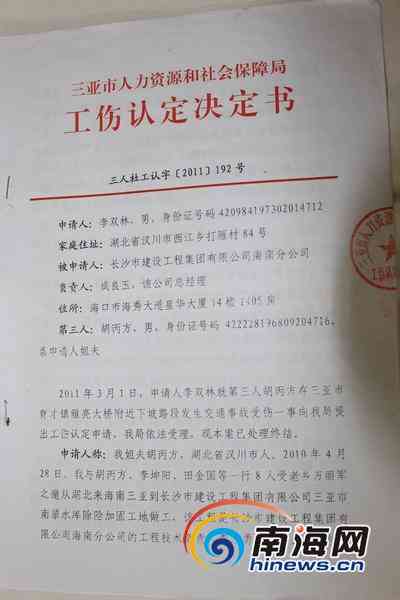 三亚市人力资源和社会保障局
工伤认定决定书
三人社工认字〔2011〕192号
申请人：李双林，男，身份证号码420984197302014712
家庭住址：湖北省汉川市西江乡打雁村84号
被申请人：长沙市建设工程集团有限公司海南分公司
负责人：成良玉，该公司总经理
住所：海口市海秀大道星华大厦14楼1405房
第三人：胡丙方，男，身份证号码422228196809204716，
系申请人姐夫
2011年3月1日，申请人李双林就第三人胡丙方在三亚市
育才镇雅亮大桥附近下坡路段发生交通事故受伤一事向我局提
出工伤认定申请，我局依法受理，现本案已处理终结。
申请人称：我姐夫胡丙方，湖北省汉川市人，2010年4月
28日，我与胡丙方、李坤阳、田金国等一行8人受老乡万丽军
之邀从湖北来海南三亚到长沙市建设工程集团有限公司三亚市
南掌水库除险加固工地做工，该工程是长沙市建设工程集团有
限公司海南分公司的工程技术
三亚市人力资源
南海网
www.hinews.cn